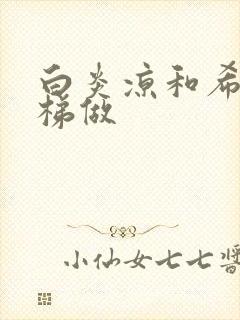 白炎凉和希
梯做
小仙女七七酱